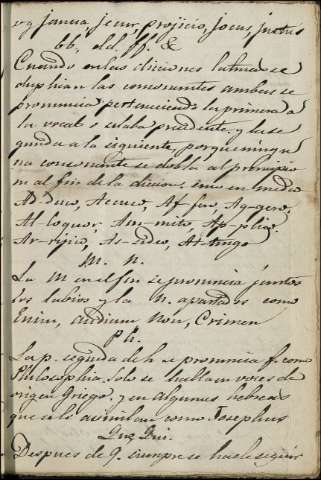 vg janua, jecur, projicio, jocus, justus
bb, dd. ff. &
Cuando en las diciones latinas se
duplican las consonantes ambas se
pronuncia perteneciendo la primera á
la vocal o silaba presedente. y la se
gunda a la siguiente, porque ningu
na consonante se dobla al principio
ni al fin de la dicion, sino en medio
Ad-duco, Ac-cuso, Af-fero, Ag-gero,
Al-loquor, Am-mito, Ap-plico,
Ar-ripio, As-sideo, At-tingo
M. N.
La M en el fin se pronuncia juntos
los labios y la N. apartados como
Enim, audium Non, Crimen
Ph.
La p. seguida de h se pronuncia f. como
Philosophia. Solo se hallan voces de
origen Griego. y en algunas hebreas
que se le asimilan como Josephus
Que Qui.
Despues de q. siempre se hade seguir